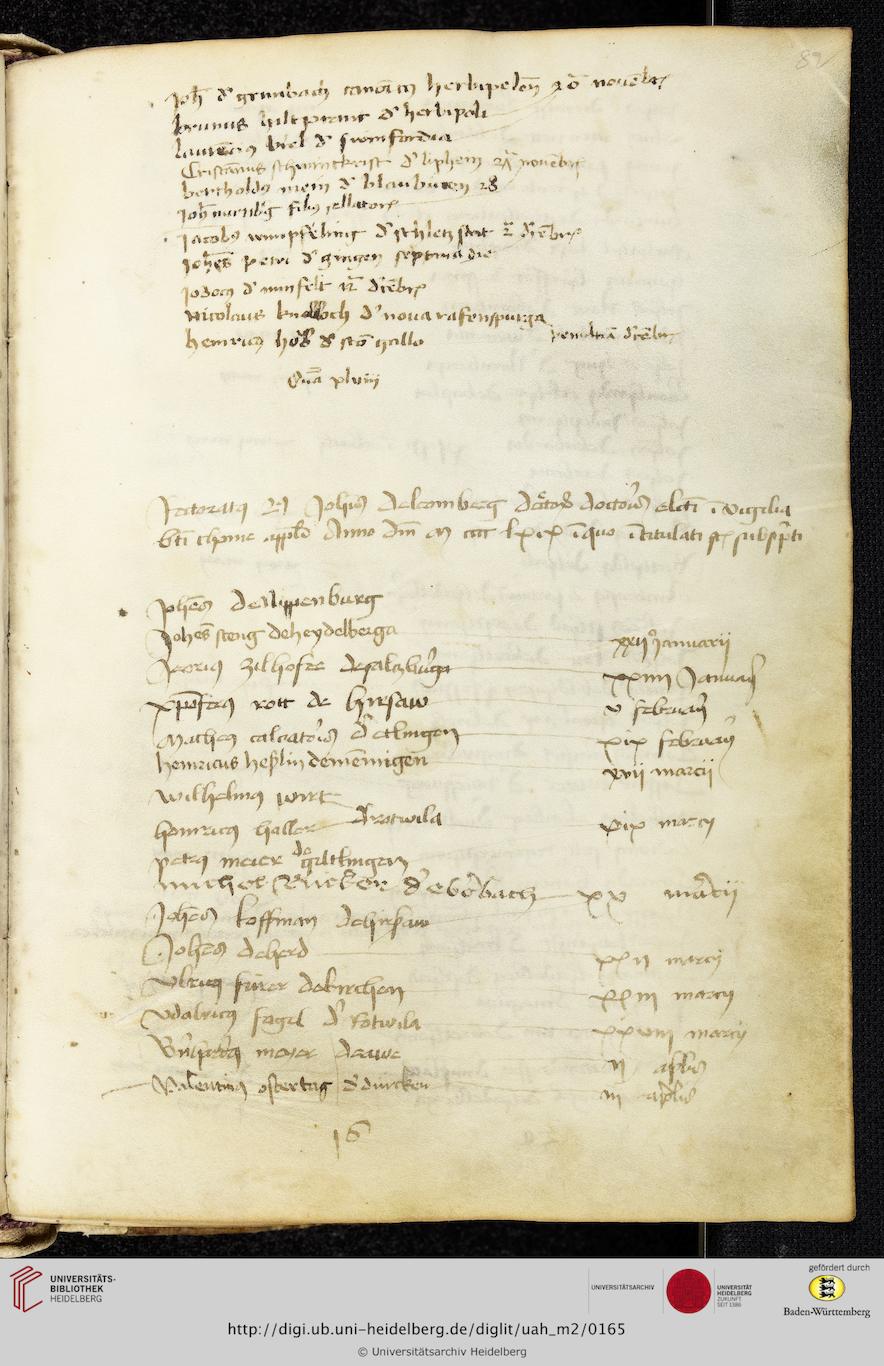 82
Joh̄ d' grunbach canoīcꝯ herbipolen̄ 20 novēbrꝭ
brunus hiltprant d' herbipoli
laurēcius biel d' francfordia
Cristānus schwintkrist d' liphem 27 novēbrꝭ
bertholdꝯ mem d' blauburen 28
Joh̄ nurtibg filiꝯ sellatorꝭ
Jacobꝯ wimpfeling d' schletzstat 2ᵃ decēbrꝭ
Johēs petri d' gingen septima die
Jodocꝯ d' munfelt 12 decēbrꝭ
Nicolaus knobloch d' nova rafenspurga
heinricꝯ d' sctō gallo penultiā decēbrꝭ
Sūa plviij
Rectoratꝯ Johīs de bomberg doctoris elcti ī vigilia
bti thome appli Anno dm̄ m cccc lxix ī quo ītitulati st subscpti
Johēs de Nippenburg
Johēs steng de heydelberga xxij ianuarij
Jeoriꝯ zilhofer de saltzburga xxiiii Januarij
xpoferꝯ rott de hirsaw v februarij
Matheꝯ calciatoris d' etlingen xix februarij
heinricus heslin de memīgen xvij marcij
wilhelmꝯ wirt
heinricꝯ haller d rotwila xix marcij
petrꝯ meier de giltlingen
michel Rucker d' ebērbach xx marcij
Johēs koffman de hirsaw
Johēs de herd xxii marcij
Vlricꝯ furer de kirchen xxiii marcij
Vdalricꝯ fogel d' Rotwila xxviii marcij
meyer de awe ii aplis
Valentinꝯ ostertag d' durcken iii aplis
16
UNIVERSITÄTS-
BIBLIOTHEK
HEIDELBERG
UNIVERSITÄTSARCHIV
UNIVERSITÄT
HEIDELBERG
ZUKUNFT
SEIT 1386
gefördert durch
Baden-Württemberg
http://digi.ub.uni-heidelberg.de/diglit/uah_m2/0165
© Universitätsarchiv Heidelberg